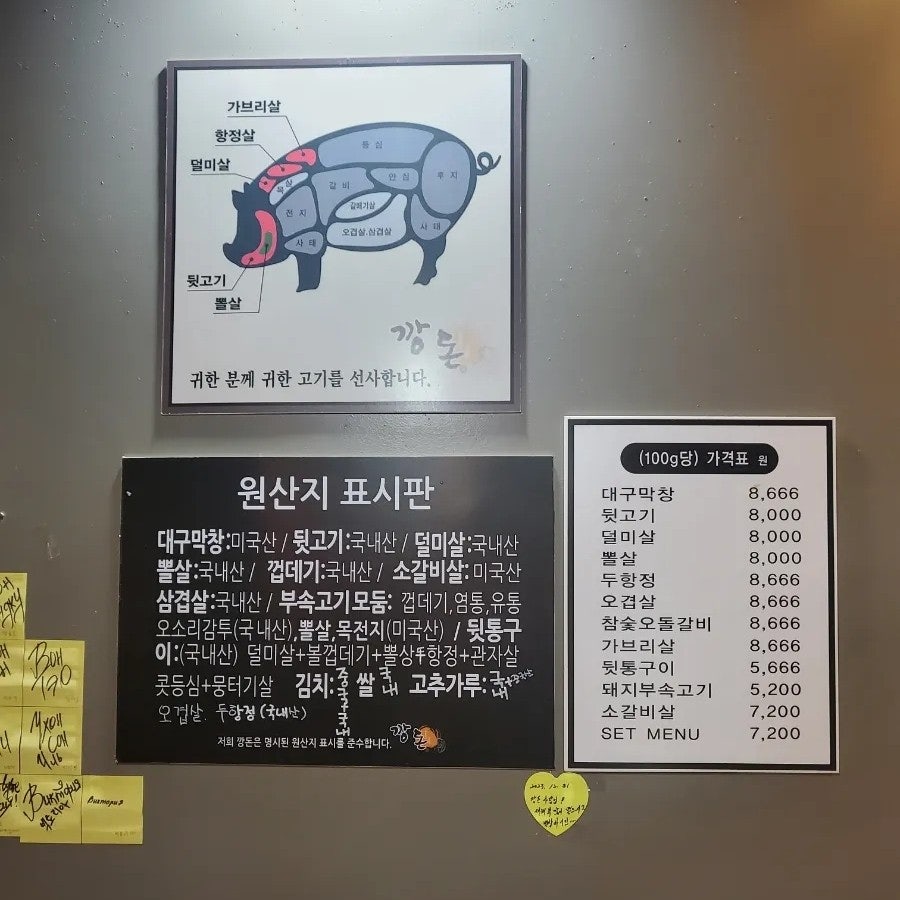 가브리살
항정살
덜미살
등심
목살
갈비
안심
후지
전지
갈매기살
사태
오겹살,삼겹살
사태
뒷고기
뽈살
깡돈
귀한 분께 귀한 고기를 선사합니다.
원산지 표시판
대구막창:미국산 / 뒷고기:국내산 / 덜미살:국내산
뽈살:국내산 / 껍데기:국내산 / 소갈비살:미국산
삼겹살:국내산 / 부속고기모둠: 껍데기,염통,유통
오소리감투(국내산),뽈살,목전지(미국산) / 뒷통구
이:(국내산) 덜미살+볼껍데기+뽈상+항정+관자살
콧등심+뭉터기살 김치: 쌀 고추가루:
오겹살. 두항정(국내산)
저희 깡돈은 명시된 원산지 표시를 준수합니다. 깡돈
(100g당) 가격표 원
대구막창 8,666
뒷고기 8,000
덜미살 8,000
뽈살 8,000
두항정 8,666
오겹살 8,666
참숯오돌갈비 8,666
가브리살 8,666
뒷통구이 5,666
돼지부속고기 5,200
소갈비살 7,200
SET MENU 7,200